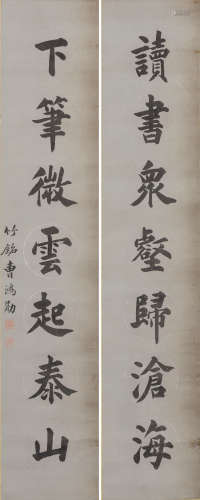 讀書衆壑歸滄海
下筆微雲起泰山
竹銘曹鴻勛